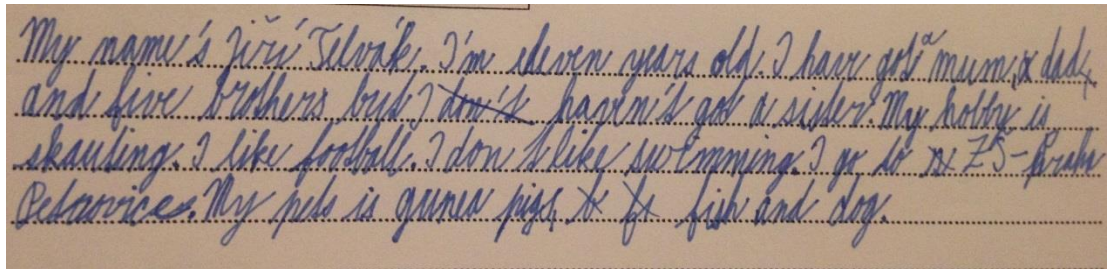 My name's Jiří Telvák. I'm eleven years old. I have got a mum, dad,
and five brothers but I don't haven't got a sister. My hobby is
skauting. I like football. I don't like swemming. I go to ZŠ - Praha
Petrovice. My pets is gunea pigs, fish and dog.